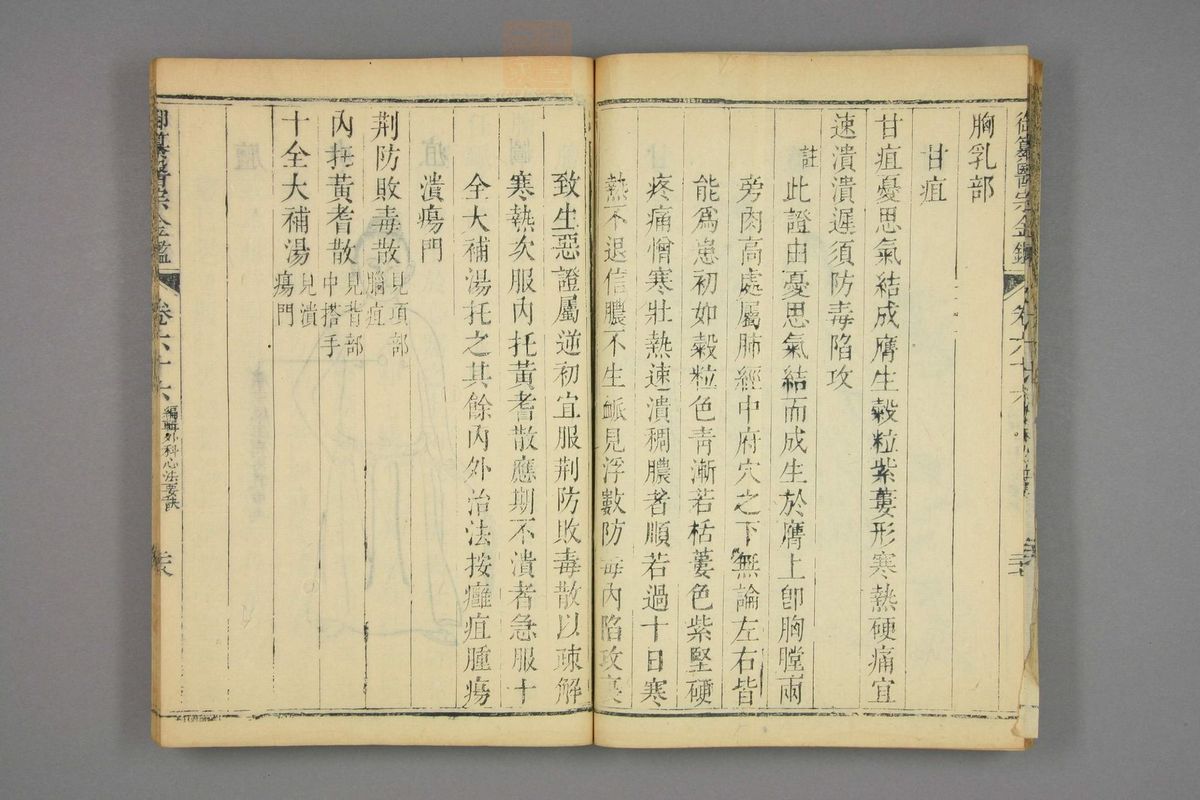 胸乳部
甘疽
甘疽憂思氣結成膺生穀粒紫蔞形寒熱硬痛宜
速潰潰遲須防毒陷攻
註此證由憂思氣結而成生於膺上卽胸膛兩
旁肉高處屬肺經中府穴之下無論左右皆
能爲患初如穀粒色青漸若栝蔞色紫堅硬
疼痛憎寒壯熱速潰稠膿者順若過十日寒
熱不退信膿不生脈見浮數防毒內陷攻裏
致生惡證屬逆初宜服荆防敗毒散以疎解
寒熱次服內托黃耆散應期不潰者急服十
全大補湯托之其餘內外治法按癰疽腫瘍
潰瘍門
荆防敗毒散見項部腦疽
內托黃耆散見背部中搭手
十全大補湯見潰瘍門
御纂醫宗金鑑
卷六十六
編輯外科心法要訣
御纂醫宗金鑑
卷六十六